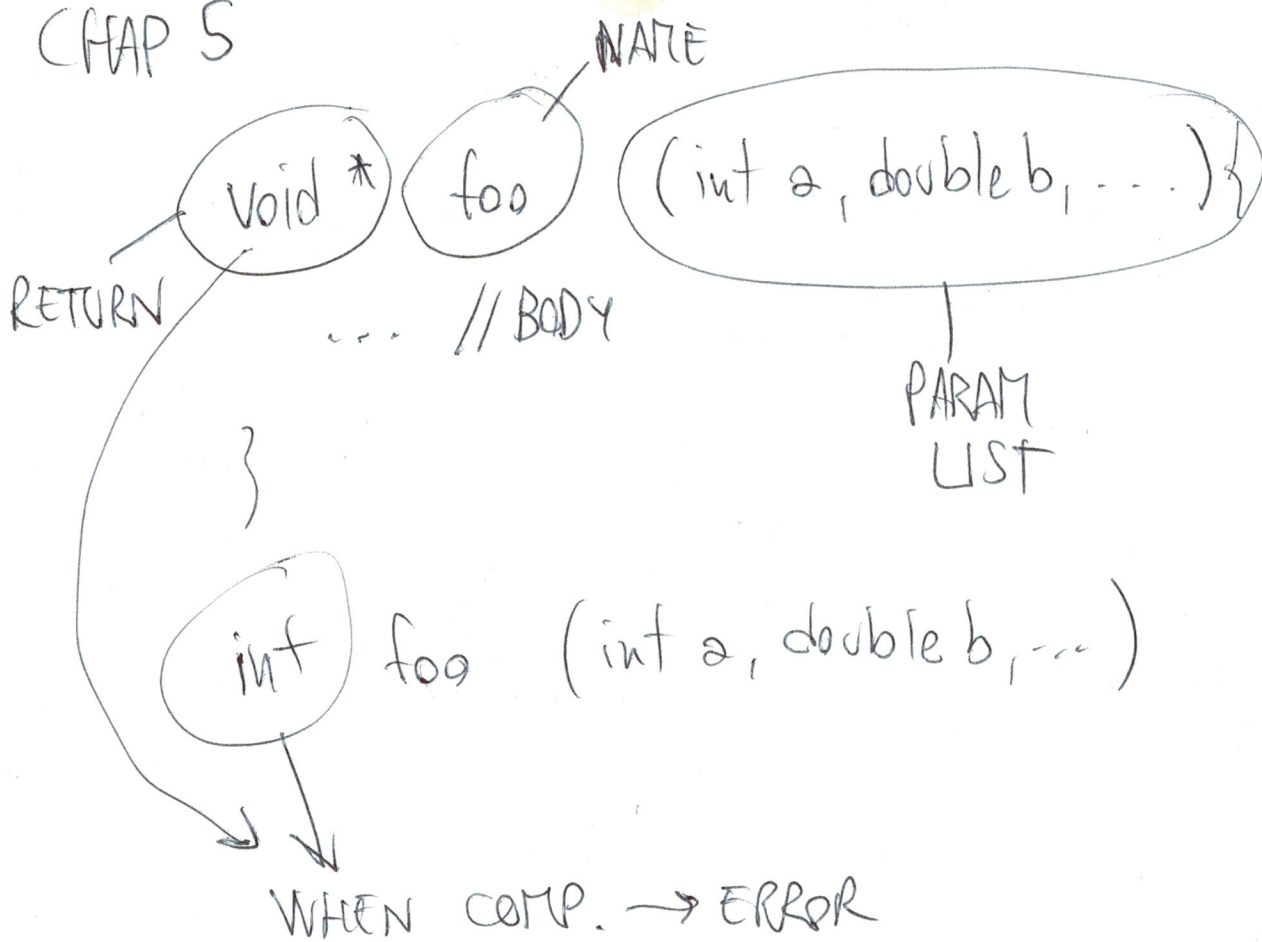 CHAP 5
NAME
void * foo (int a, double b, ....) {
RETURN
... // BODY
PARAM
LIST
}
int foo (int a, double b, ...)
WHEN COMP. → ERROR